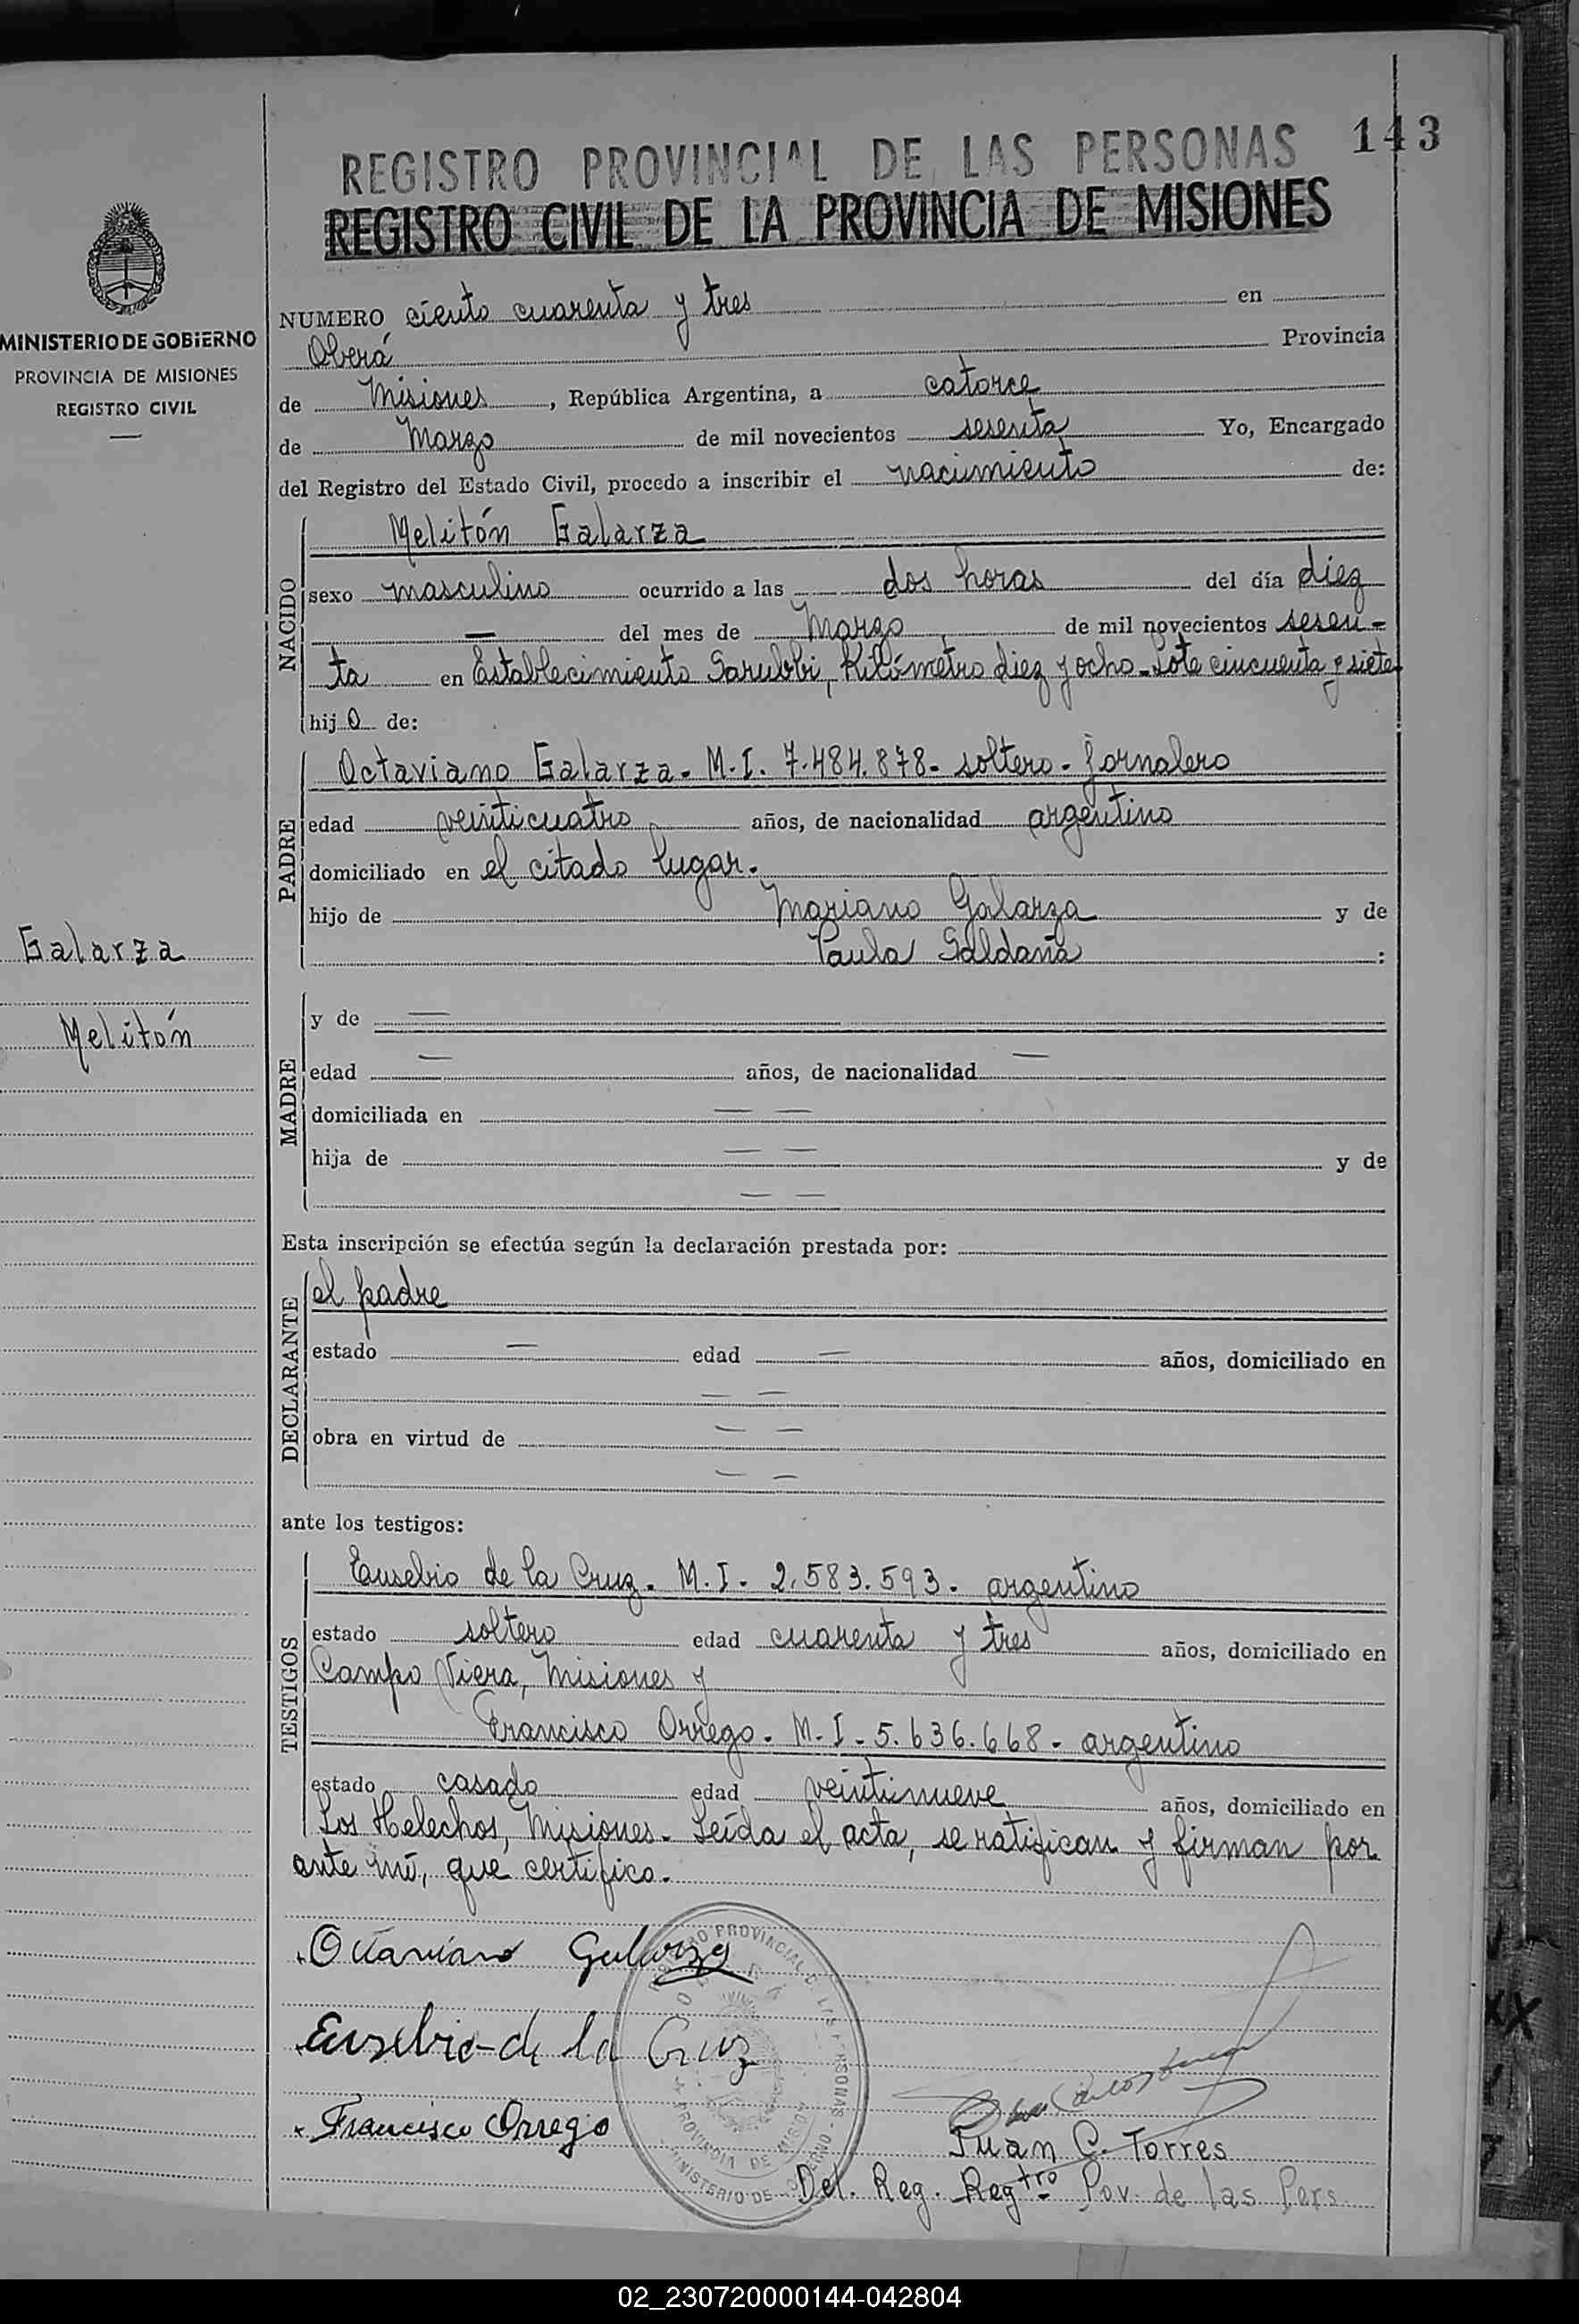 143
REGISTRO PROVINCIAL DE LAS PERSONAS
REGISTRO CIVIL DE LA PROVINCIA DE MISIONES
MINISTERIO DE GOBIERNO
PROVINCIA DE MISIONES
REGISTRO CIVIL
NUMERO ciento cuarenta y tres en
Oberá Provincia
de Misiones, República Argentina, a catorce
de Marzo de mil novecientos sesenta Yo, Encargado
del Registro del Estado Civil, procedo a inscribir el nacimiento de:
NACIDO
Melitón Galarza
sexo masculino ocurrido a las dos horas del día diez
— del mes de Marzo de mil novecientos sesen-
ta en Establecimiento Sarubbi, Kilómetro diez y ocho - Lote cincuenta y siete
hijo de:
PADRE
Octaviano Galarza - M.I. 7.484.878 - soltero - jornalero
edad veinticuatro años, de nacionalidad argentino
domiciliado en el citado lugar.
hijo de Mariano Galarza y de
Paula Saldaña :
Galarza
Melitón
MADRE
y de —
edad — años, de nacionalidad —
domiciliada en — —
hija de — — y de
— —
Esta inscripción se efectúa según la declaración prestada por:
DECLARANTE
el padre
estado — edad — años, domiciliado en
— —
obra en virtud de — —
— —
ante los testigos:
TESTIGOS
Eusebio de la Cruz - M.I. 2.583.593 - argentino
estado soltero edad cuarenta y tres años, domiciliado en
Campo Viera, Misiones y
Francisco Orrego - M.I. 5.636.668 - argentino
estado casado edad veintinueve años, domiciliado en
Los Helechos, Misiones - Leída el acta, se ratifican y firman por
ante mí, que certifico.
Octaviano Galarza
Eusebio de la Cruz
Francisco Orrego
REGISTRO PROVINCIAL DE LAS PERSONAS
OBERÁ
PROVINCIA DE MISIONES
MINISTERIO DE GOBIERNO
Juan C. Torres
Del. Reg. Regtro Pov. de las Pers.
02_230720000144-042804